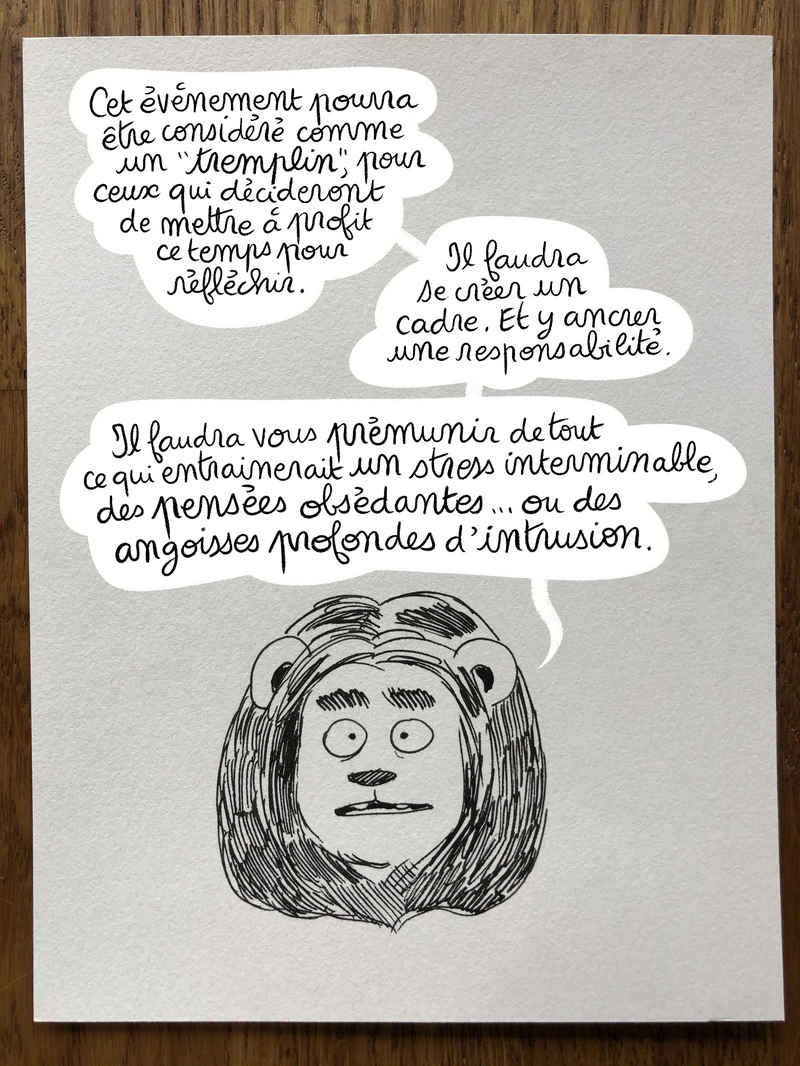 Cet événement pourra
être considéré comme
un "tremplin", pour
ceux qui décideront
de mettre à profit
ce temps pour
réfléchir.
Il faudra
se créer un
cadre. Et y ancrer
une responsabilité.
Il faudra vous prémunir de tout
ce qui entrainerait un stress interminable,
des pensées obsédantes... ou des
angoisses profondes d'intrusion.